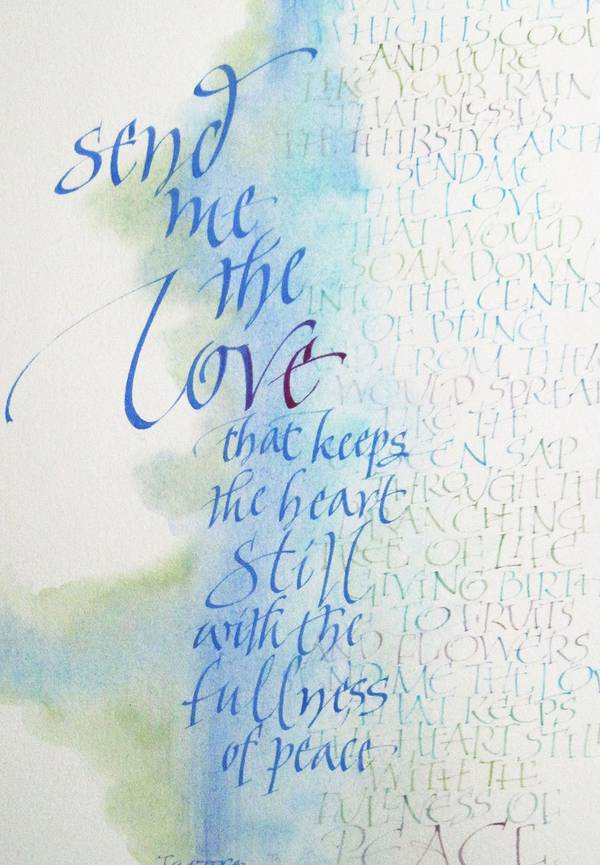 send
me
the
love
that keeps
the heart
still
with the
fullness
of peace
WHICH IS COOL
AND PURE
LIKE YOUR RAIN
THAT BLESSES
THE THIRSTY EARTH
SEND ME
THE LOVE
THAT WOULD
SOAK DOWN
INTO THE CENTR
OF BEING
FROM THE
WOULD SPREA
LIKE THE
SAP
THROUGH TH
BRANCHING
TREE OF LIFE
GIVING BIRTH
TO FRUITS
AND FLOWERS
SEND ME THE LOV
THAT KEEPS
THE HEART STILL
WITH THE
FULLNESS OF
PEACE
Tagore